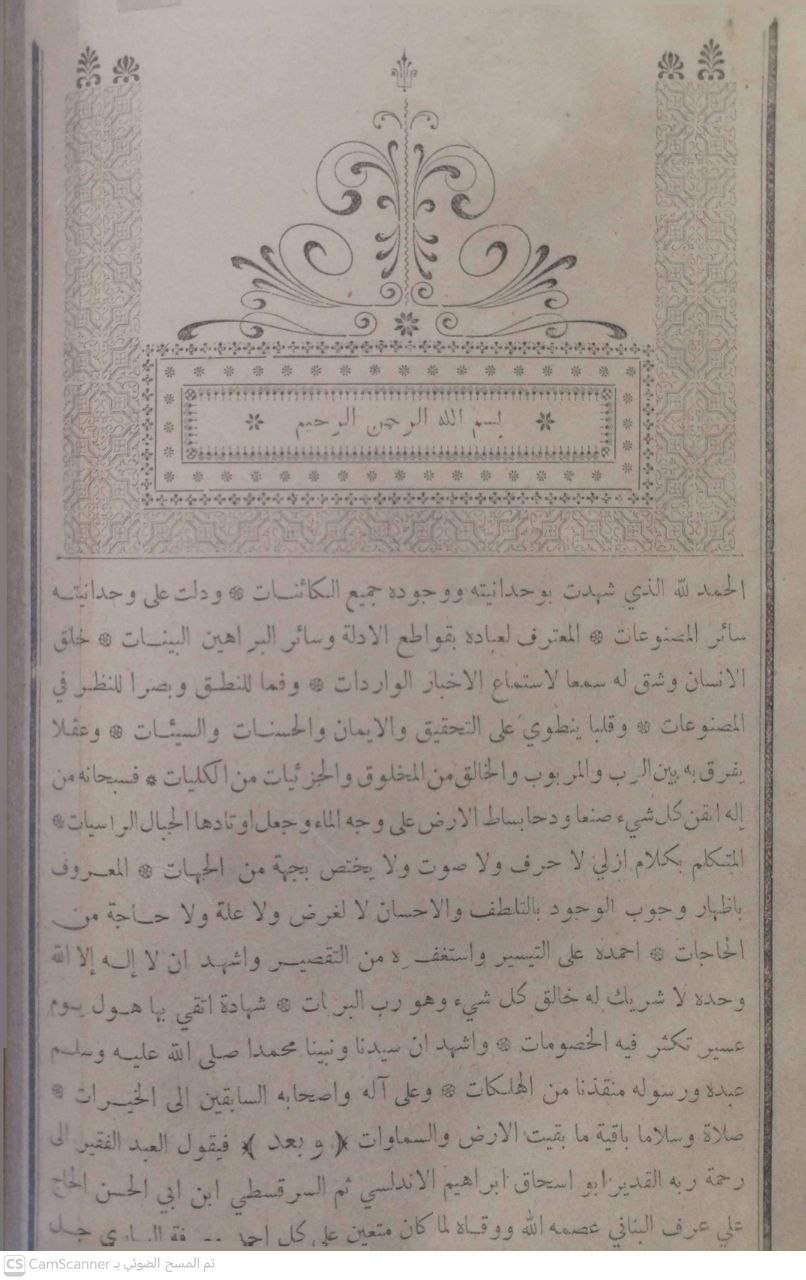 بسم الله الرحمن الرحيم
الحمد لله الذي شهدت بوحدانيته ووجوده جميع الكائنات ❊ ودلت على وحدانيته
سائر المصنوعات ❊ المعترف لعباده بقواطع الادلة وسائر البراهين البينات ❊ خلق
الانسان وشق له سمعا لاستماع الاخبار الواردات ❊ وفما للنطق وبصرا للنظر في
المصنوعات ❊ وقلبا ينطوي على التحقيق والايمان والحسنات والسيئات ❊ وعقلا
يفرق به بين الرب والمربوب والخالق من المخلوق والجزئيات من الكليات ❊ فسبحانه من
إله اتقن كل شيء صنعا ودحا بساط الارض على وجه الماء وجعل اوتادها الجبال الراسيات ❊
المتكلم بكلام ازلي لا حرف ولا صوت ولا يختص بجهة من الجهات ❊ المعروف
باظهار وجوب الوجود بالتلطف والاحسان لا لغرض ولا علة ولا حاجة من
الحاجات ❊ احمده على التيسير واستغفره من التقصير واشهد ان لا إله إلا الله
وحده لا شريك له خالق كل شيء وهو رب البريات ❊ شهادة اتقي بها هول يوم
عسير تكثر فيه الخصومات ❊ واشهد ان سيدنا ونبينا محمدا صلى الله عليه وسلم
عبده ورسوله منقذنا من الهلكات ❊ وعلى آله واصحابه السابقين الى الخيرات ❊
صلاة وسلاما باقية ما بقيت الارض والسماوات ﴿ و بعد ﴾ فيقول العبد الفقير الى
رحمة ربه القدير ابو اسحاق ابراهيم الاندلسي ثم السرقسطي ابن ابي الحسن الحاج
علي عرف البناني عصمه الله ووقاه لما كان متعين على كل احد
تم المسح الضوئي بـ CamScanner
CS